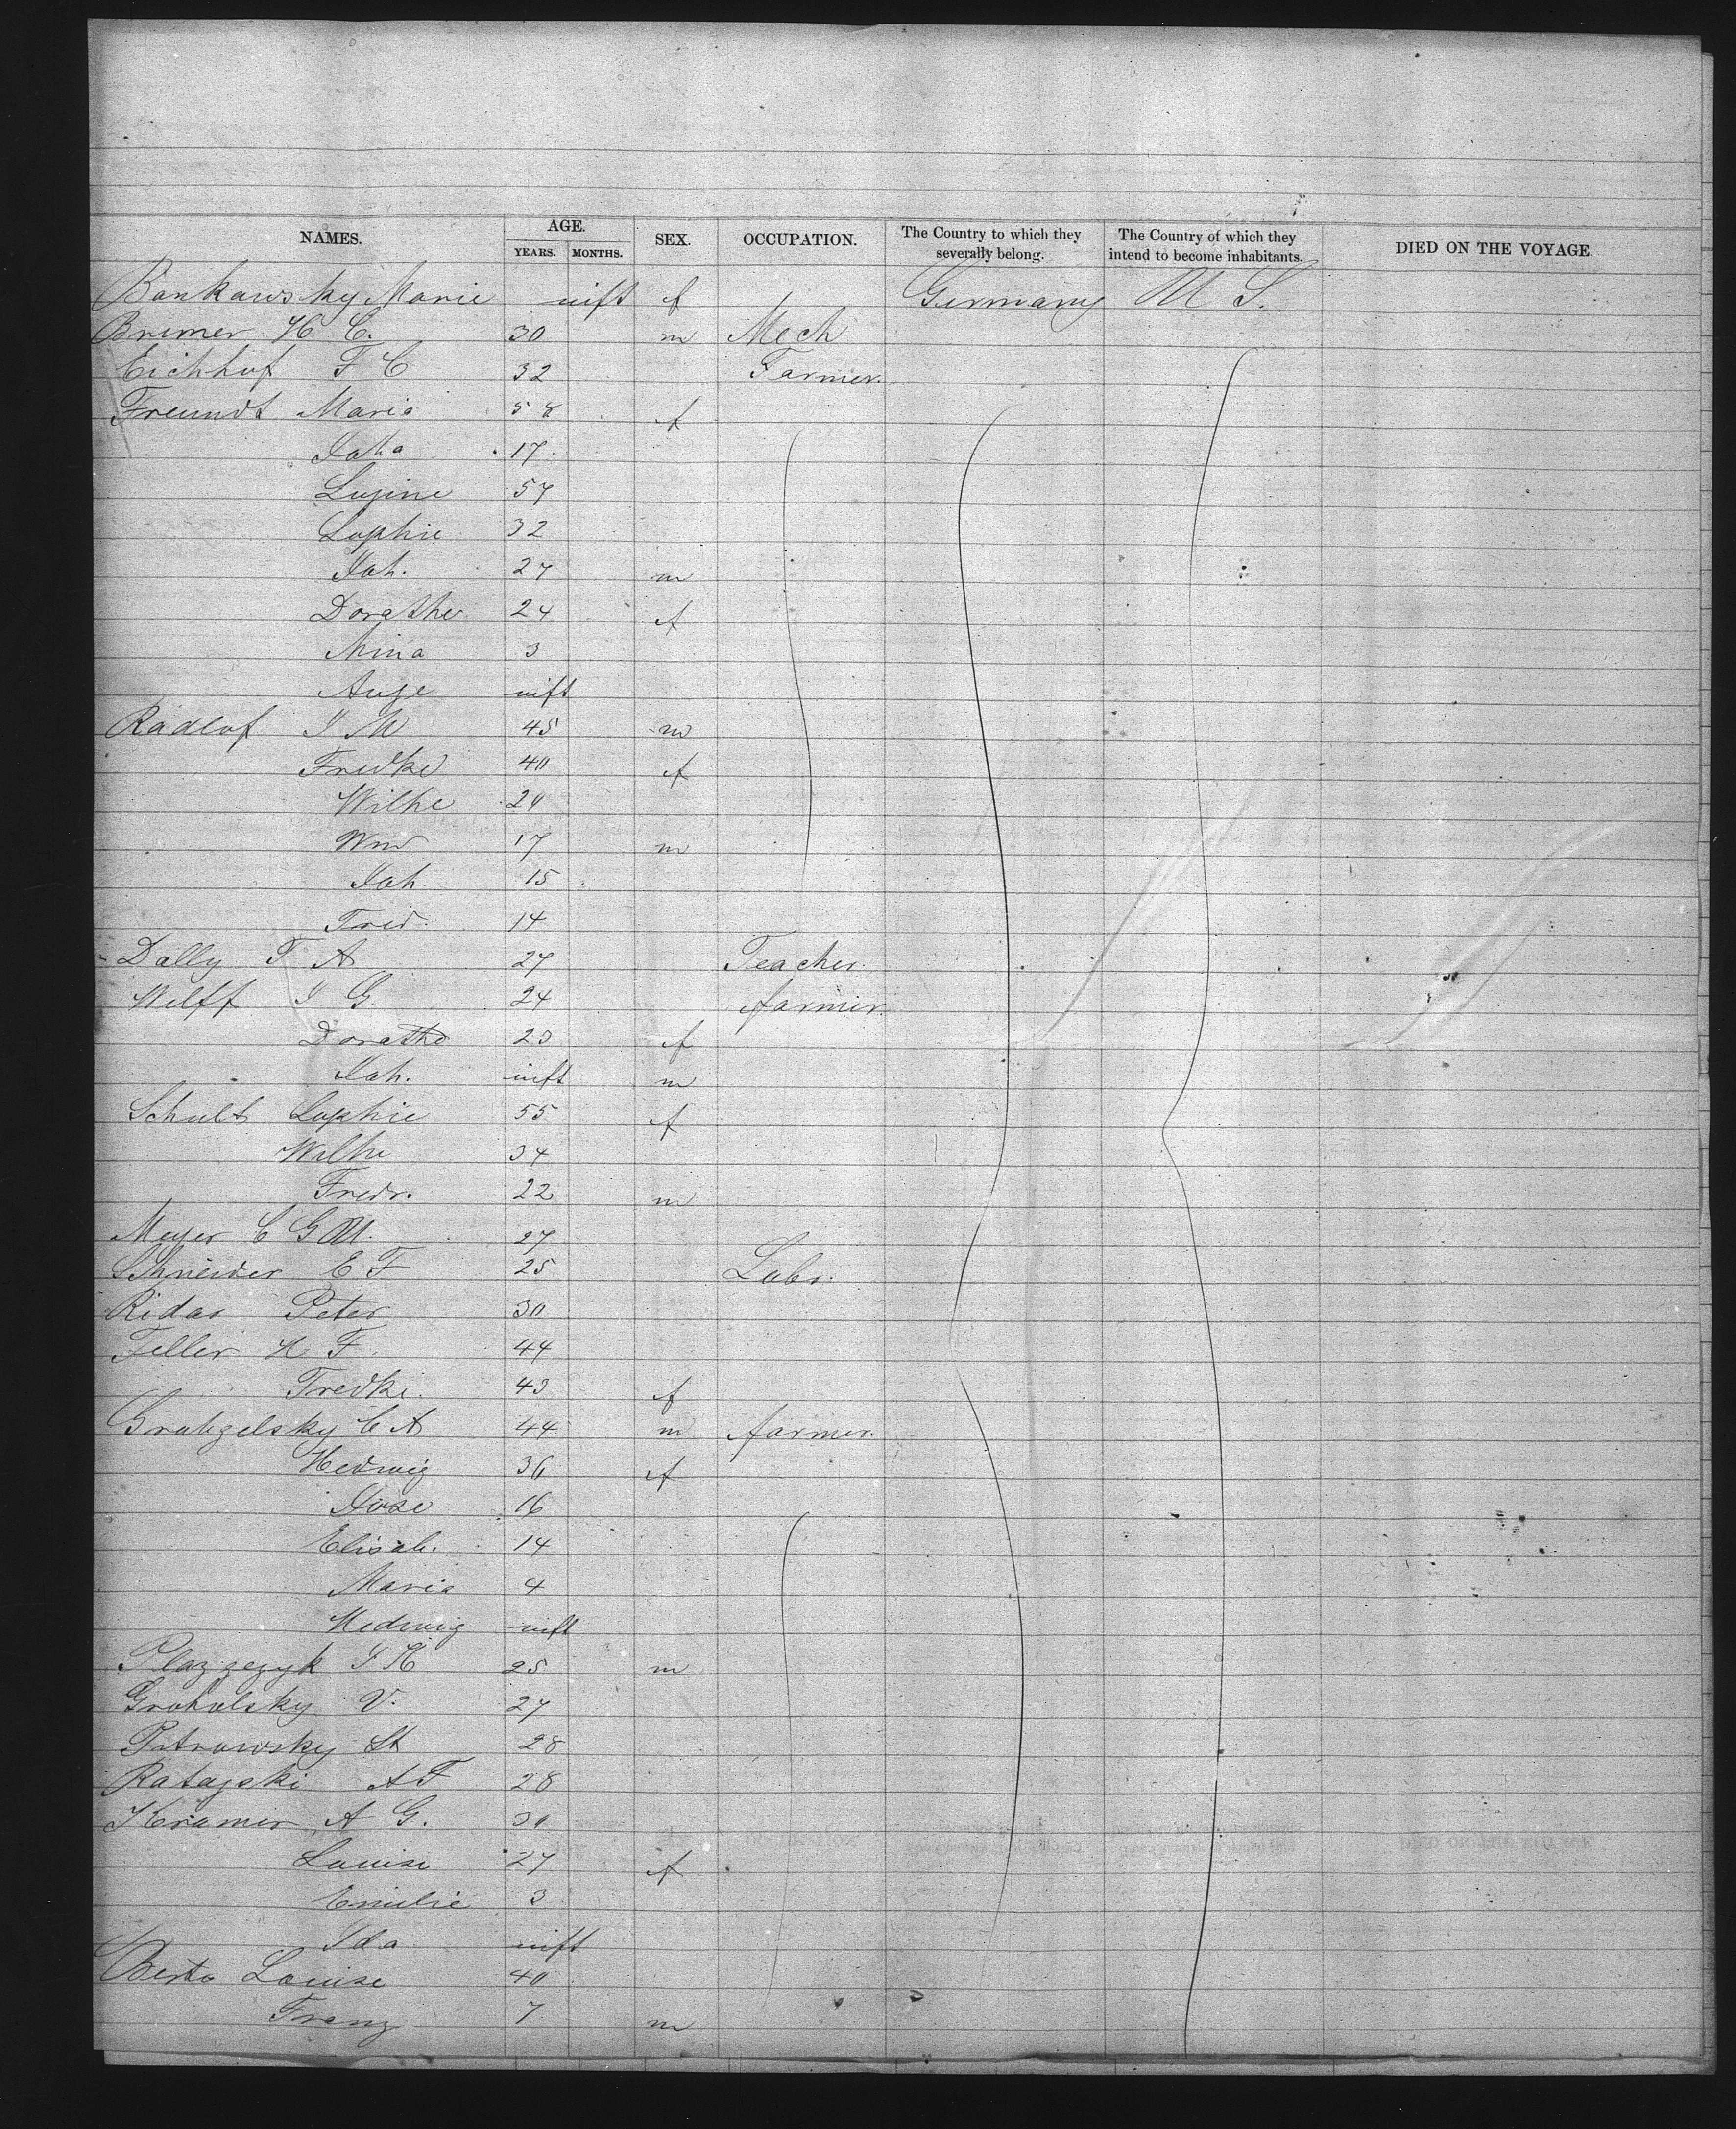 NAMES. AGE. YEARS. MONTHS. SEX. OCCUPATION. The Country to which they severally belong. The Country of which they intend to become inhabitants. DIED ON THE VOYAGE
Bankawsky Marie inft f Germany U S.
Bremer H C. 30 m Mech
Eichhof F C 32 Farmer.
Freundt Maria 58 f
Joha 17
57
Sophie 32
Joh. 27 m
Dorothe 24 f
Mina 3
Auge inft
Radlof J M 45 m
Fredke 40 f
Wilhe 20
Wm 17 m
Joh 15
Fred. 14
Dally F A 27 Teacher.
Wulff J G 24 farmer
Doratha 23 f
Joh. inft m
Schult Sophie 55 f
Wilhe 34
Fredr. 22 m
Meyer C G M. 27
Schneider E F 25 Labr.
Ridar Peter 30
Feller H F. 44
Fredke. 43 f
C A 44 m farmer.
Hedwig 36 f
Jose 16
Elisab. 14
Maria 4
Hedwig inft
25 m
Groholsky V. 27
Petrowsky St 28
Ratajski A F 28
Kramer A G. 30
Louise 27 f
Emilie 3
Ida inft
Louise 40
Franz 7 m